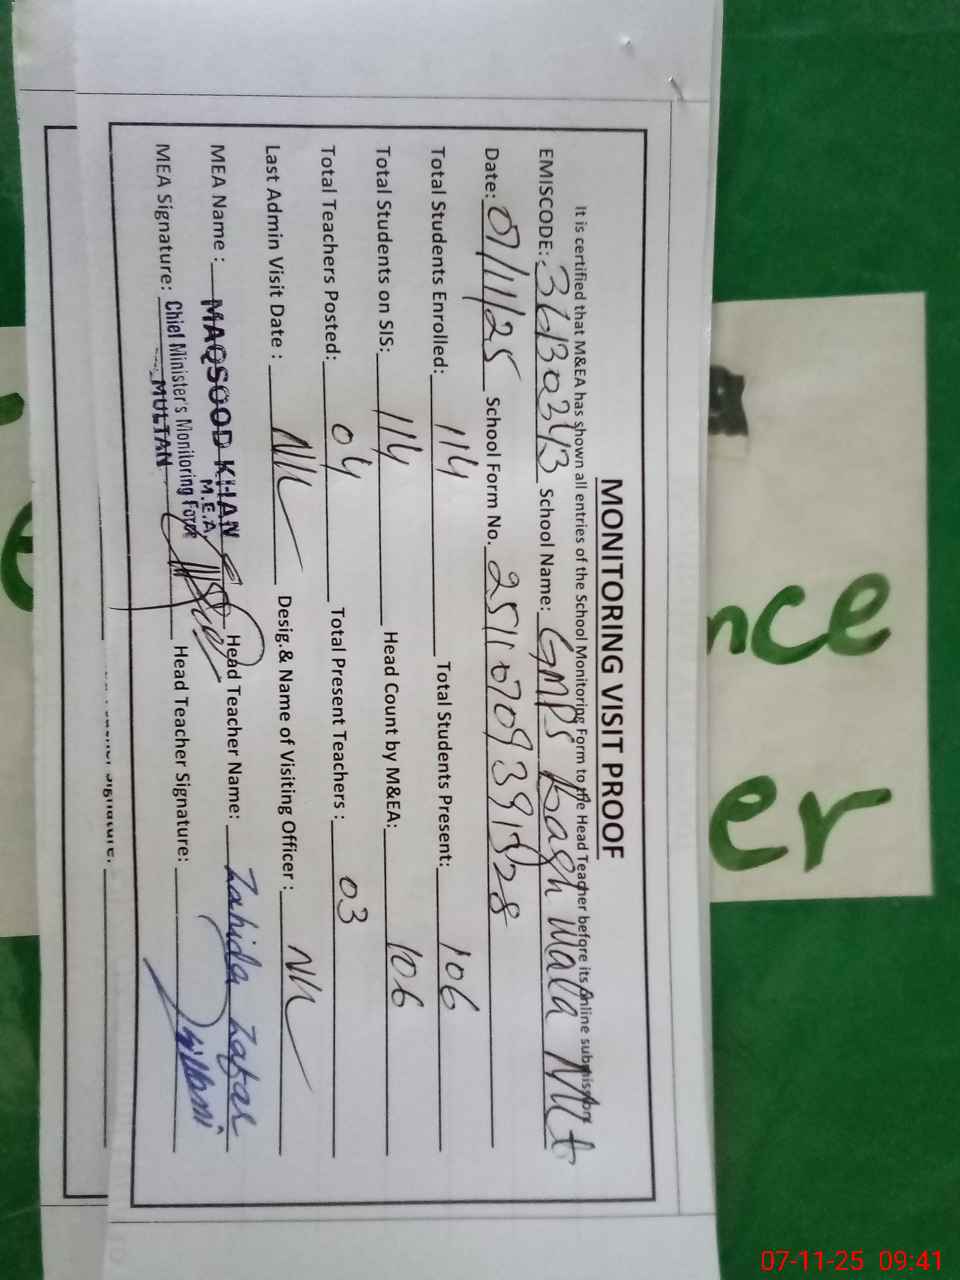 MONITORING VISIT PROOF
It is certified that M&EA has shown all entries of the School Monitoring Form to the Head Teacher before its online submission
EMISCODE: 36130343 School Name: GMPS Bagh Wala Mlt
Date: 07/11/25 School Form No. 2511070939
Total Students Enrolled: 114 Total Students Present: 106
Total Students on SIS: 114 Head Count by M&EA: 106
Total Teachers Posted: 04 Total Present Teachers : 03
Last Admin Visit Date : Nil Desig.& Name of Visiting Officer : Nil
MEA Name : MAQSOOD KHAN Head Teacher Name: Zahida Zafar
M.E.A
MEA Signature: Chief Minister's Monitoring Force Head Teacher Signature:
MULTAN
nce
er
07-11-25 09:41